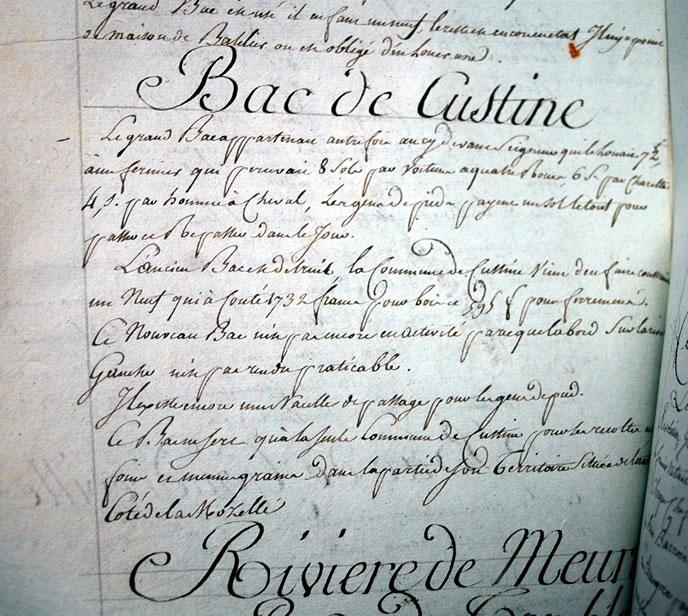 Le grand Bac en est
de maison de Batelier on est obligé d'en louer une.
Bac de Custine
Le grand Bac appartenait autre fois au cy devant Seigneur qui le louait 72 ₶
à une fermier qui percevait 8 Sols par Voiture a quatre Roues, 6 S. par Charette
4, s. par homme à Cheval, Les gens de pied payent un sol le tout pour
passer et Repasser dans le Jour.
L'ancien Bac est detruit la Commune de Custine vient d'en faire construire
un Neuf qui à Couté 1732 francs pour bois et 595 ₶ pour ferrements.
Ce Nouveau Bac n'est pas encore en activité parce que l'abord Sur la rive
Gauche n'est pas rendu praticable.
Il existe encore une Naselle de passage pour les gens de pied.
Ce Bac ne sert qu'à la seule Commune de Custine pour ses recoltes en
foins et menus grains dans la partie de son Territoire située de l'autre
Coté de la Mozelle
Riviere de Meur